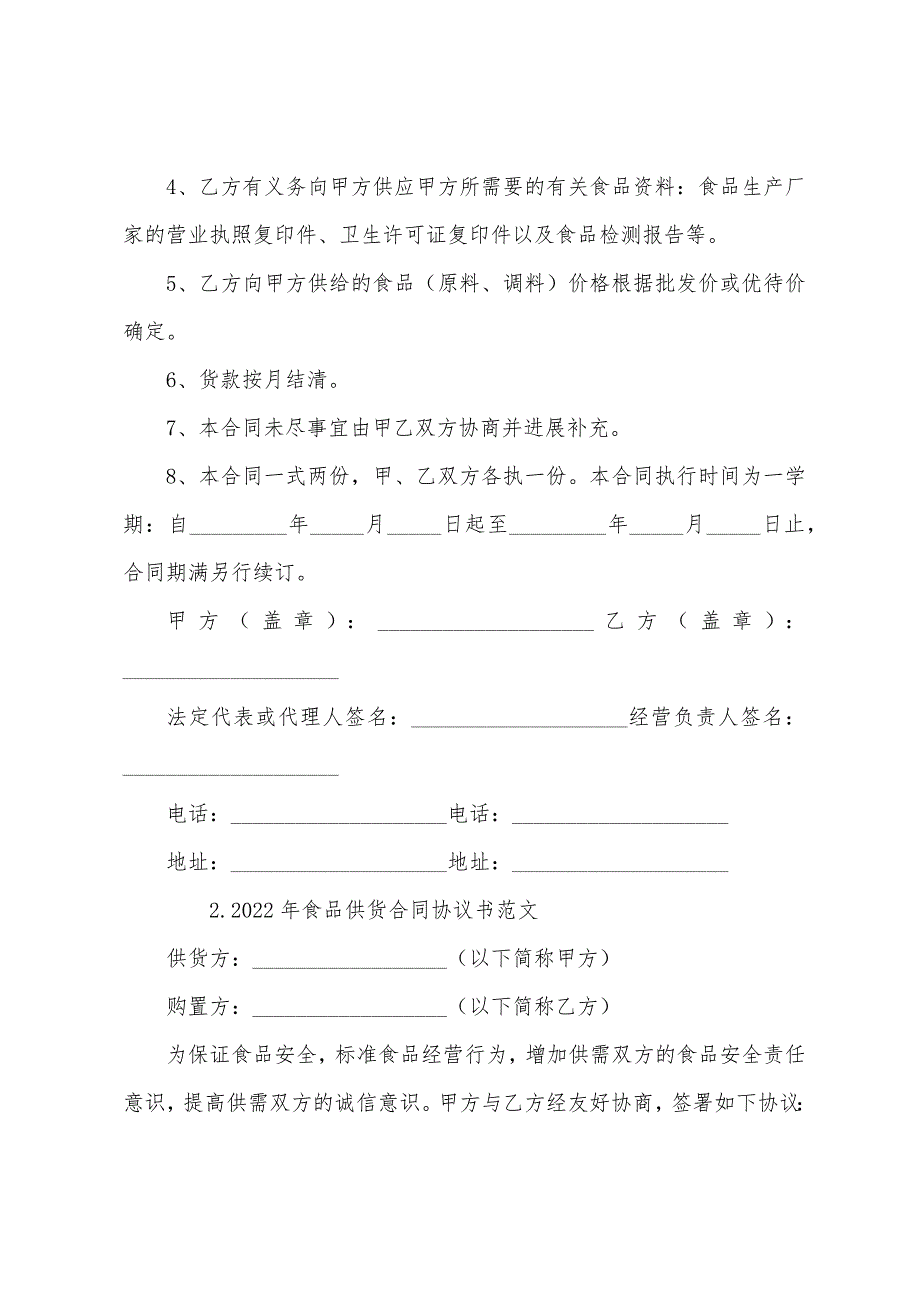 4、乙方有义务向甲方供应甲方所需要的有关食品资料：食品生产厂
家的营业执照复印件、卫生许可证复印件以及食品检测报告等。
5、乙方向甲方供给的食品（原料、调料）价格根据批发价或优待价
确定。
6、货款按月结清。
7、本合同未尽事宜由甲乙双方协商并进展补充。
8、本合同一式两份，甲、乙双方各执一份。本合同执行时间为一学
期：自_________年_____月_____日起至_________年_____月_____日止，
合同期满另行续订。
甲方（盖章）：____________________乙方（盖章）：
____________________
法定代表或代理人签名：____________________经营负责人签名：
____________________
电话：____________________电话：____________________
地址：____________________地址：____________________
2.2022年食品供货合同协议书范文
供货方：__________________（以下简称甲方）
购置方：__________________（以下简称乙方）
为保证食品安全，标准食品经营行为，增加供需双方的食品安全责任
意识，提高供需双方的诚信意识。甲方与乙方经友好协商，签署如下协议：